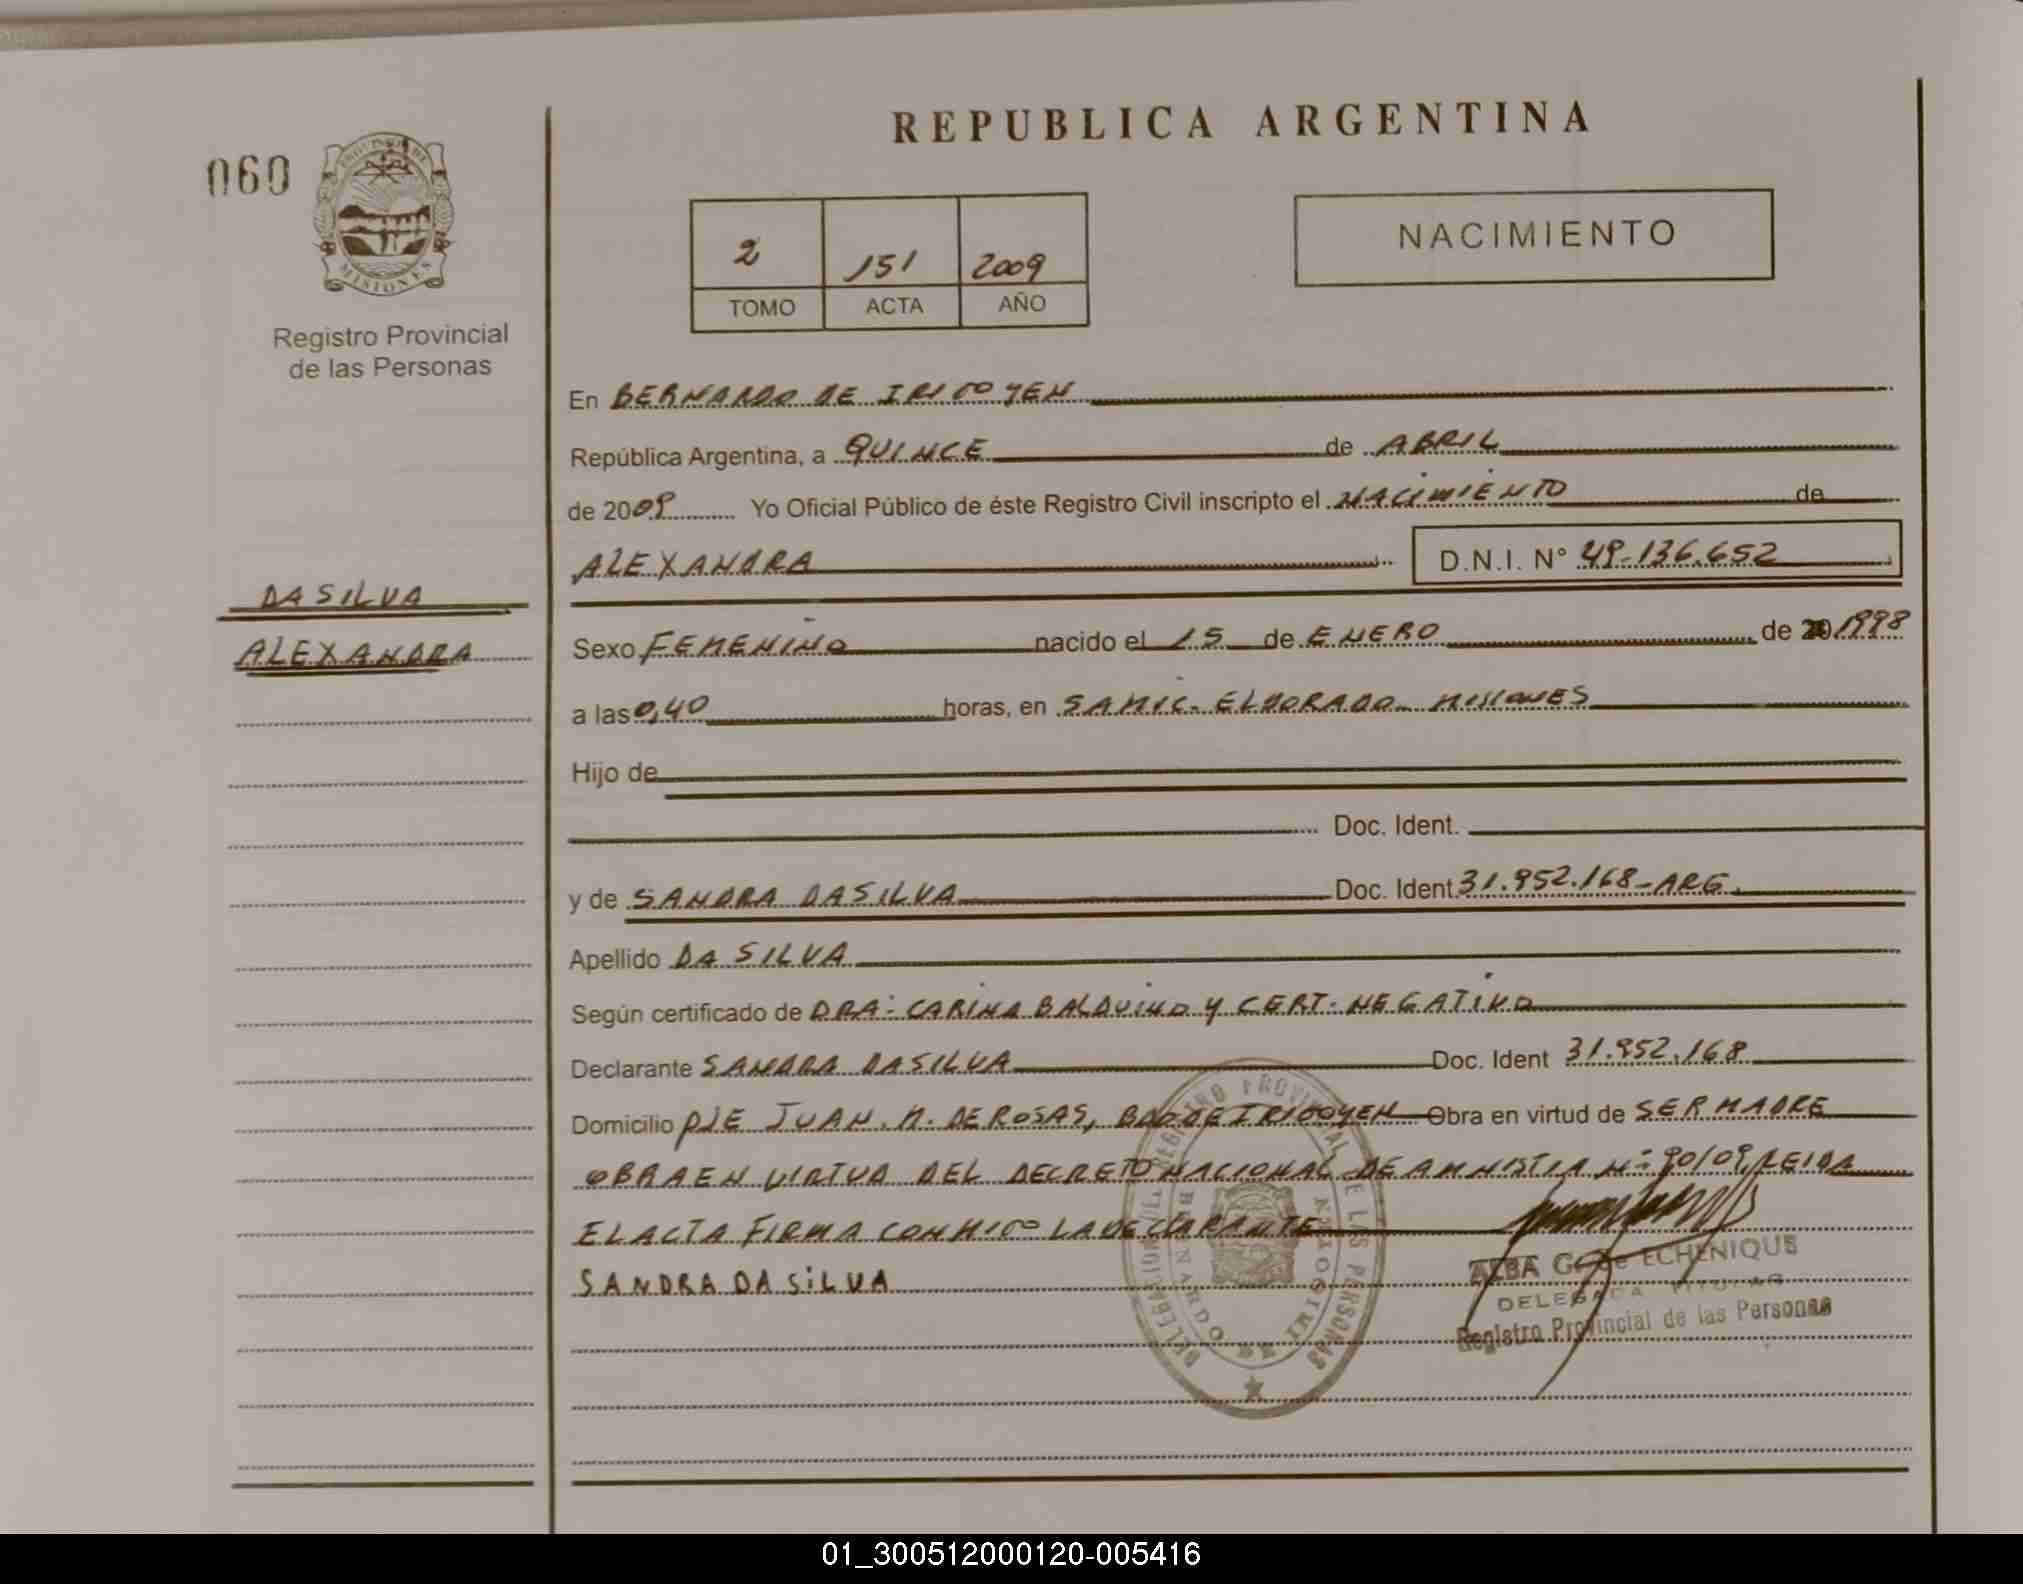 REPUBLICA ARGENTINA
060
PROVINCIA DE
MISIONES
Registro Provincial
de las Personas
2 151 2009
TOMO ACTA AÑO
NACIMIENTO
En BERNARDO DE IRIGOYEN
República Argentina, a QUINCE de ABRIL
de 2009 Yo Oficial Público de éste Registro Civil inscripto el NACIMIENTO de
ALEXANDRA D.N.I. N° 49.136.652
DA SILVA
ALEXANDRA
Sexo FEMENINO nacido el 15 de ENERO de 20 1998
a las 0,40 horas, en SAMIC. ELDORADO MISIONES
Hijo de
Doc. Ident.
y de SANDRA DA SILVA Doc. Ident 31.952.168-ARG.
Apellido DA SILVA
Según certificado de DRA: CARINA BALDUINO Y CERT. NEGATIVO
Declarante SANDRA DA SILVA Doc. Ident 31.952.168
Domicilio PJE JUAN. M. DE ROSAS, BDO DE IRIGOYEN Obra en virtud de SER MADRE
OBRA EN VIRTUD DEL DECRETO NACIONAL DE AMNISTIA Nº 90/09, LEIDA
EL ACTA FIRMA CONMIGO LA DECLARANTE
SANDRA DA SILVA
DELEGACION DEL REGISTRO PROVINCIAL DE LAS PERSONAS
BERNARDO DE IRIGOYEN
ALBA G. de ECHENIQUE
DELEGADA TITULAR
Registro Provincial de las Personas
01_300512000120-005416